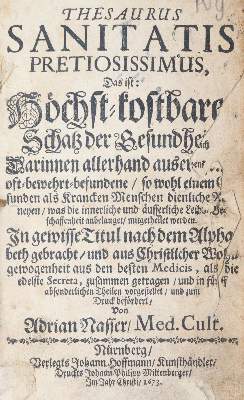 THESAURUS
SANITATIS
PRETIOSISSIMUS,
Das ist:
Höchst-kostbare
Schatz der Gesundhe
Darinnen allerhand auser
oft-bewehrt-befundene / so wohl einem
sunden als Krancken Menschen dienliche
neyen / was die innerliche und äusserliche
schaffenheit anbelanget / mitgetheilet werden.
In gewisse Titul nach dem Alpha
beth gebracht / und aus Christlicher Wol
gewogenheit aus den besten Medicis, als die
edelste Secreta, zusammen getragen / und in fünf
absonderlichen Theilen vorgestellet / und zum
Druck befördert /
Von
Adrian Nasser / Med. Cult.
Nürnberg /
Verlegts Johann Hoffmann / Kunsthändler /
Druckts Johann-Philipp Miltenberger /
Im Jahr Christi / 1673.